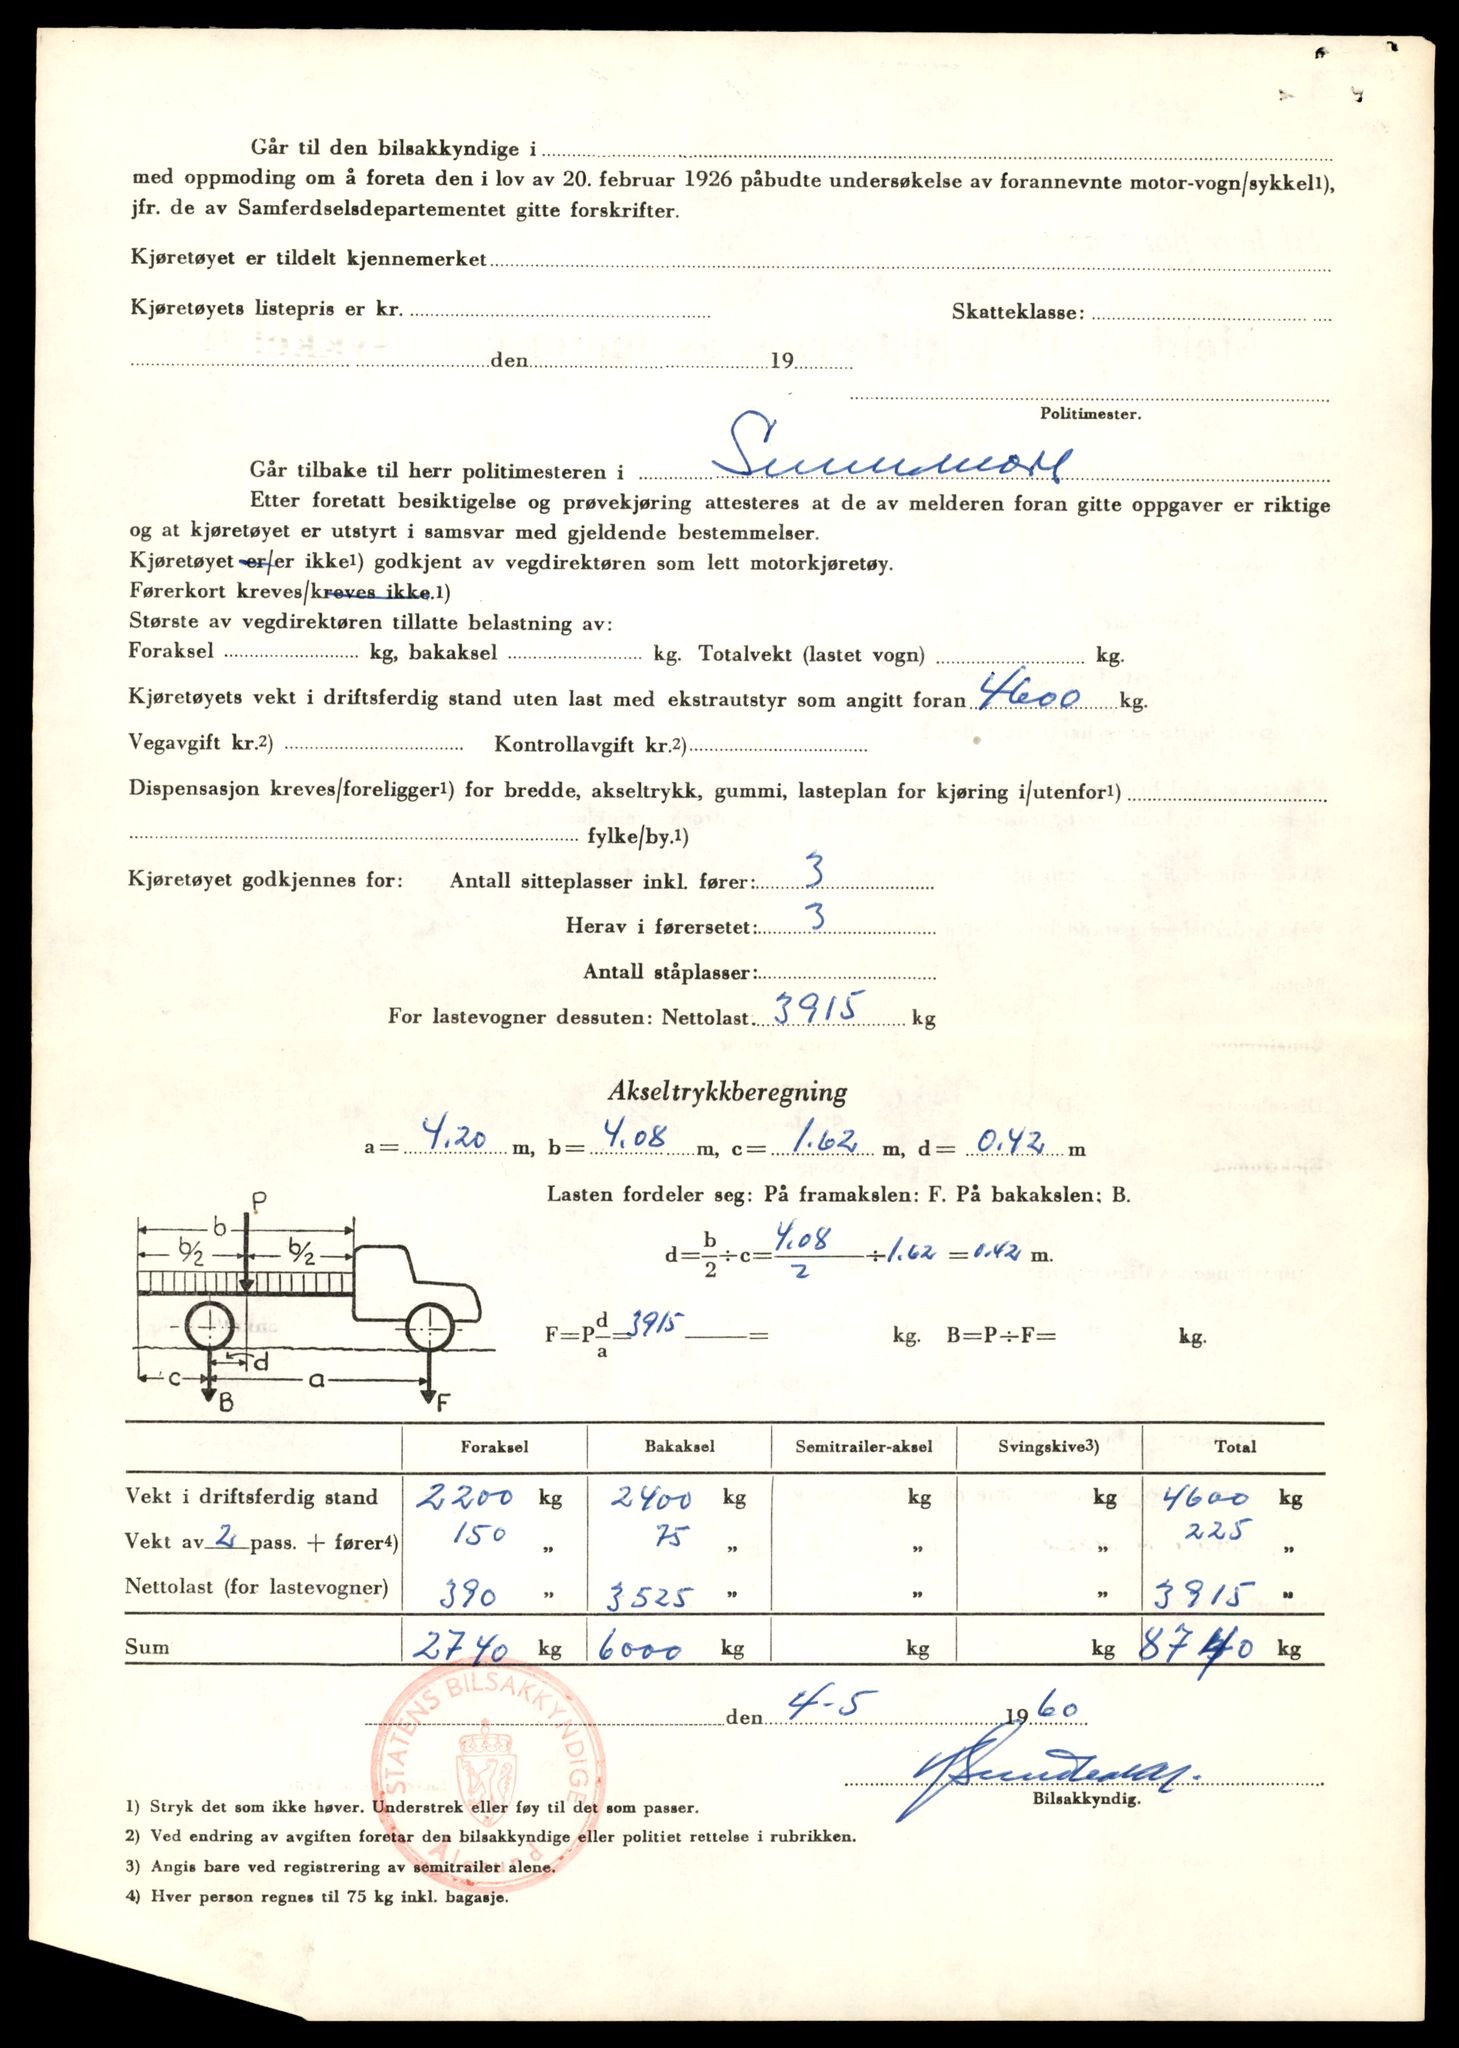 Går til den bilsakkyndige i
med oppmoding om å foreta den i lov av 20. februar 1926 påbudte undersøkelse av forannevnte motor-vogn/sykkel1),
jfr. de av Samferdselsdepartementet gitte forskrifter.
Kjøretøyet er tildelt kjennemerket
Kjøretøyets listepris er kr. Skatteklasse:
den 19
Politimester.
Går tilbake til herr politimesteren i Sunnmøre
Etter foretatt besiktigelse og prøvekjøring attesteres at de av melderen foran gitte oppgaver er riktige
og at kjøretøyet er utstyrt i samsvar med gjeldende bestemmelser.
Kjøretøyet er/er ikke1) godkjent av vegdirektøren som lett motorkjøretøy.
Førerkort kreves/kreves ikke.1)
Største av vegdirektøren tillatte belastning av:
Foraksel kg, bakaksel kg. Totalvekt (lastet vogn) kg.
Kjøretøyets vekt i driftsferdig stand uten last med ekstrautstyr som angitt foran 4600 kg.
Vegavgift kr.2) Kontrollavgift kr.2)
Dispensasjon kreves/foreligger1) for bredde, akseltrykk, gummi, lasteplan for kjøring i/utenfor1)
fylke/by.1)
Kjøretøyet godkjennes for: Antall sitteplasser inkl. fører: 3
Herav i førersetet: 3
Antall ståplasser:
For lastevogner dessuten: Nettolast. 3915 kg
Akseltrykkberegning
a= 4.20 m, b= 4.08 m, c= 1.62 m, d= 0.42 m
Lasten fordeler seg: På framakslen: F. På bakakslen: B.
P
b
b/2 b/2
d=b/2÷c= 4.08/2 ÷ 1.62 = 0.42 m.
F=P d/a= 3915 = kg. B=P÷F= kg.
d
c a
B F
Foraksel Bakaksel Semitrailer-aksel Svingskive3) Total
Vekt i driftsferdig stand 2200 kg 2400 kg kg kg 4600 kg
Vekt av 2 pass. + fører4) 150 „ 75 „ „ „ 225 „
Nettolast (for lastevogner) 390 „ 3525 „ „ „ 3915 „
Sum 2740 kg 6000 kg kg kg 8740 kg
den 4-5 1960
STATENS BILSAKKYNDIGE
Ålesund
Bilsakkyndig.
1) Stryk det som ikke høver. Understrek eller føy til det som passer.
2) Ved endring av avgiften foretar den bilsakkyndige eller politiet rettelse i rubrikken.
3) Angis bare ved registrering av semitrailer alene.
4) Hver person regnes til 75 kg inkl. bagasje.